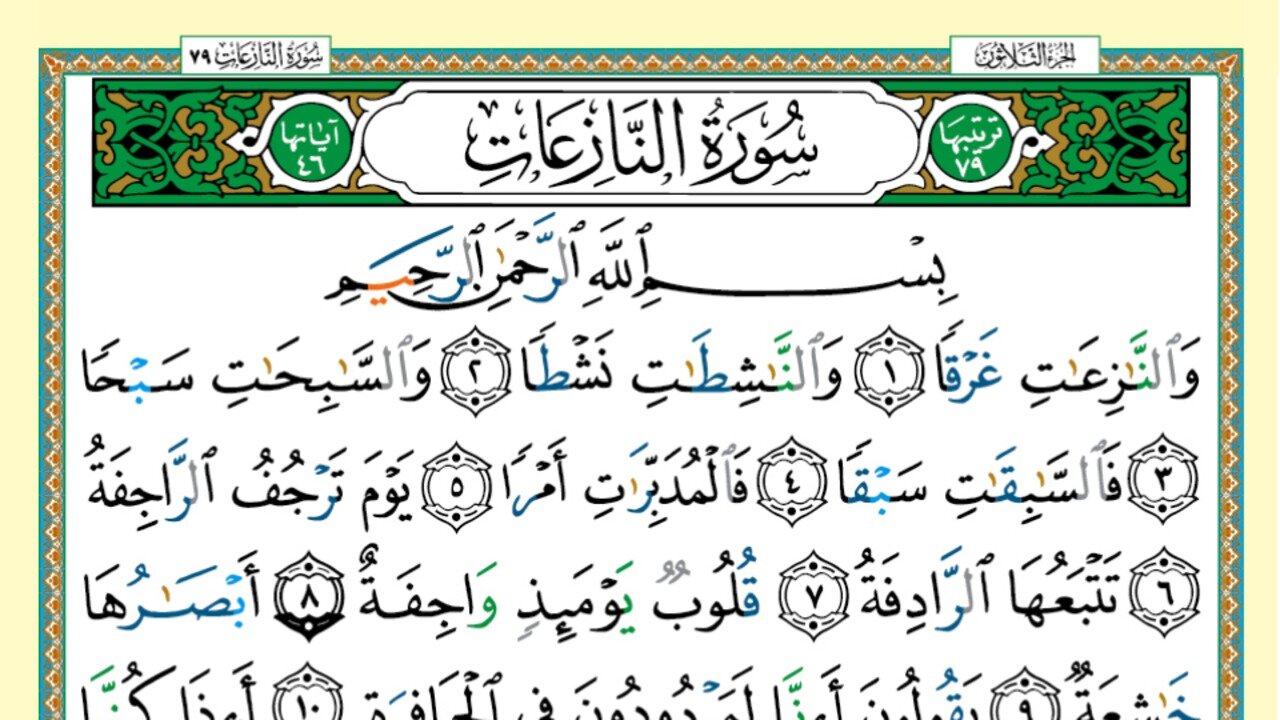 الجزء الثلاثون
سورة النازعات ٧٩
ترتيبها ٧٩
سُورَةُ النَّازِعَاتِ
آياتها ٤٦
بِسْمِ ٱللَّهِ ٱلرَّحْمَٰنِ ٱلرَّحِيمِ
وَٱلنَّٰزِعَٰتِ غَرْقًا ١ وَٱلنَّٰشِطَٰتِ نَشْطًا ٢ وَٱلسَّٰبِحَٰتِ سَبْحًا
٣ فَٱلسَّٰبِقَٰتِ سَبْقًا ٤ فَٱلْمُدَبِّرَٰتِ أَمْرًا ٥ يَوْمَ تَرْجُفُ ٱلرَّاجِفَةُ
٦ تَتْبَعُهَا ٱلرَّادِفَةُ ٧ قُلُوبٌ يَوْمَئِذٍ وَاجِفَةٌ ٨ أَبْصَٰرُهَا
خَٰشِعَةٌ ٩ يَقُولُونَ أَءِنَّا لَمَرْدُودُونَ فِي ٱلْحَافِرَةِ ١٠ أَءِذَا كُنَّا